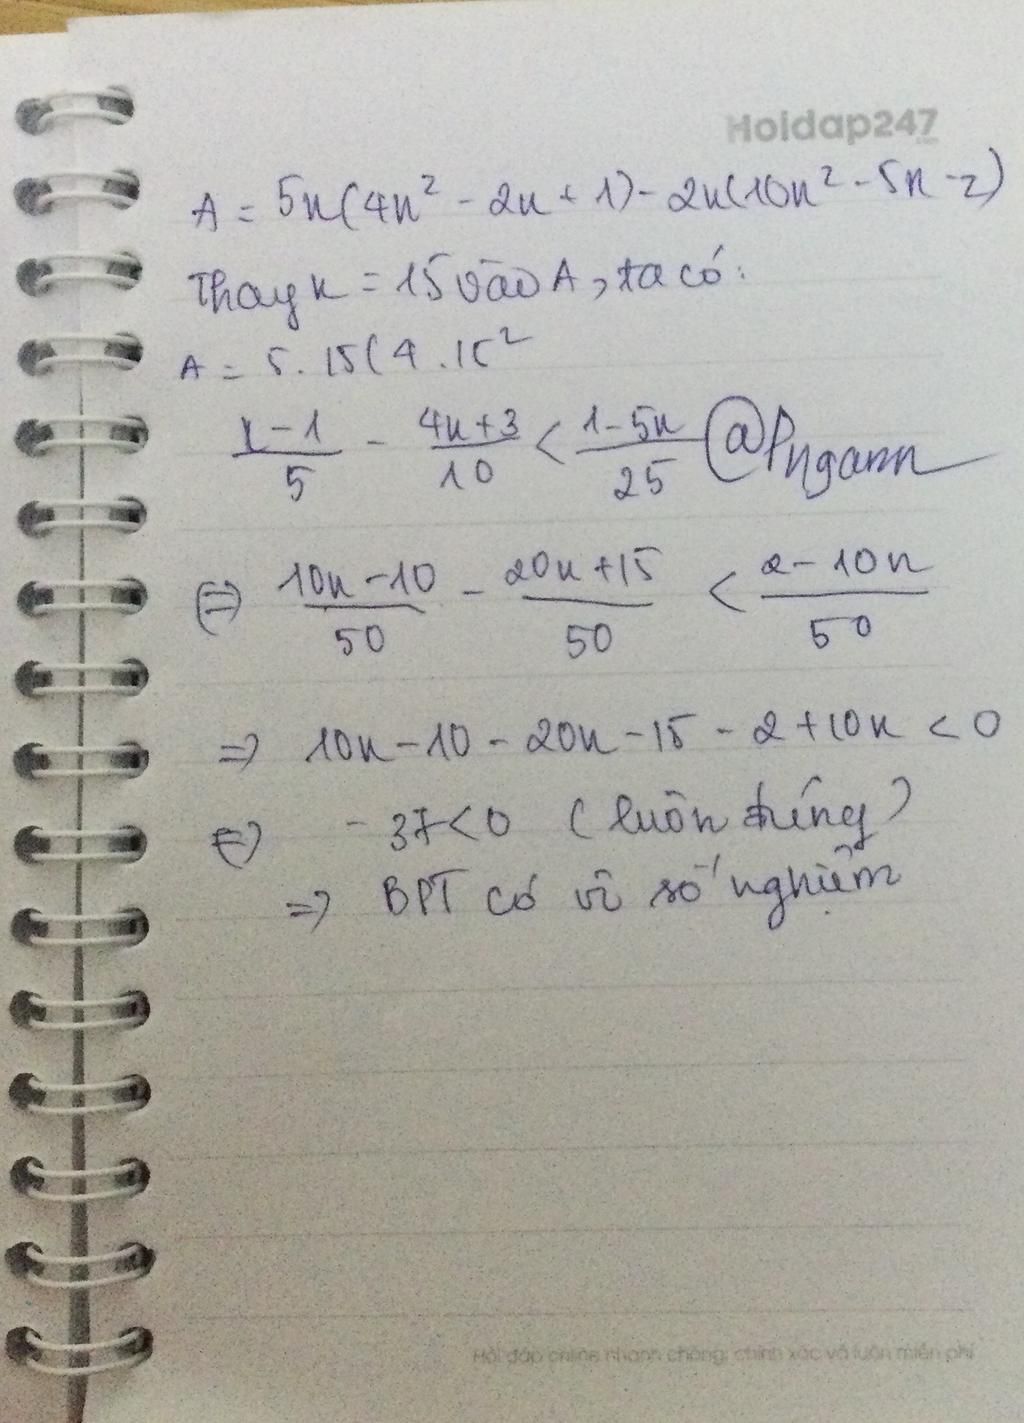 Hoidap247
A = 5x(4x² - 2x + 1) - 2x(10x² - 5x - 2)
Thay x = 15 vào A, ta có:
A = 5.15(4.15²
x-1/5 - 4x+3/10 < 1-5x/25 @Pngann
⇔ 10x-10/50 - 20x+15/50 < 2-10x/50
⇒ 10x-10-20x-15-2+10x < 0
⇔ -37<0 (luôn đúng)
⇒ BPT có vô số nghiệm
Hỏi đáp online nhanh chóng, chính xác và luôn miễn phí